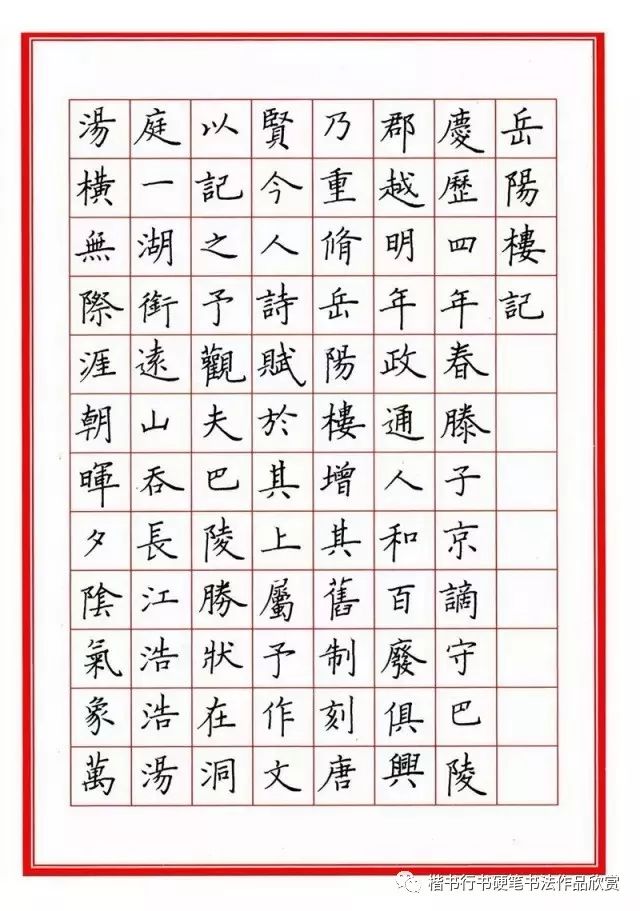 岳陽樓記
慶歷四年春滕子京謫守巴陵
郡越明年政通人和百廢俱興
乃重脩岳陽樓增其舊制刻唐
賢今人詩賦於其上屬予作文
以記之予觀夫巴陵勝狀在洞
庭一湖銜遠山吞長江浩浩湯
湯橫無際涯朝暉夕陰氣象萬
楷书行书硬笔书法作品欣赏